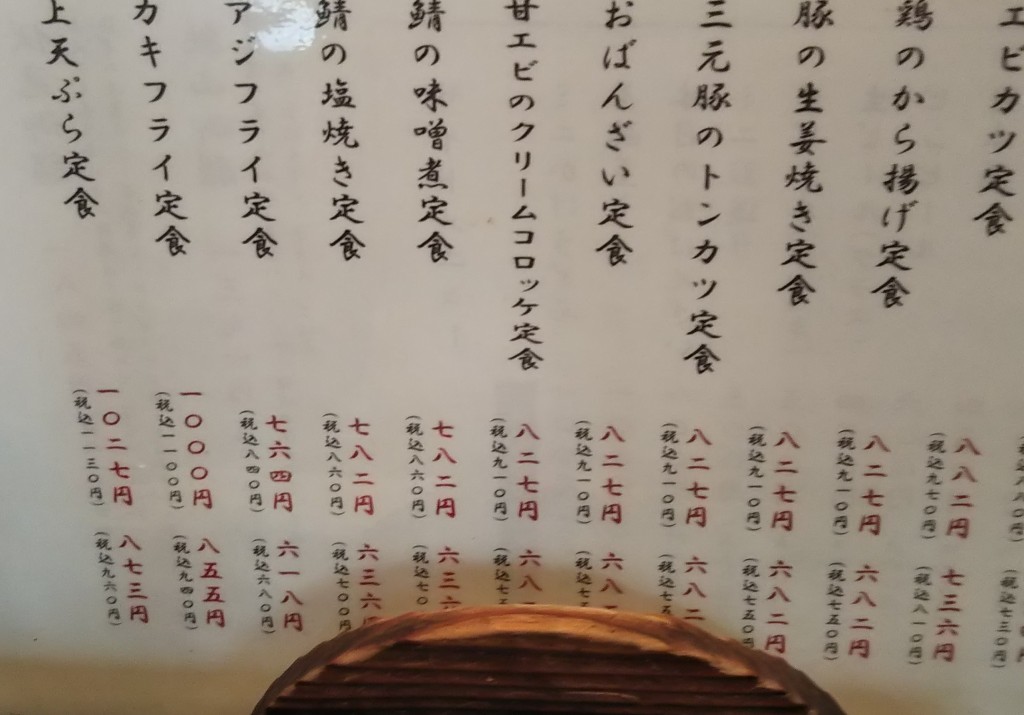 エビカツ定食
八八二円
(税込九七〇円)
七三六円
(税込八一〇円)
鶏のから揚げ定食
八二七円
(税込九一〇円)
六八二円
(税込七五〇円)
豚の生姜焼き定食
八二七円
(税込九一〇円)
六八二円
(税込七五〇円)
三元豚のトンカツ定食
八二七円
(税込九一〇円)
六八二
(税込七
おばんざい定食
八二七円
(税込九一〇円)
六八二
(税込七五
甘エビのクリームコロッケ定食
八二七円
(税込九一〇円)
六八二
(税込七五
鯖の味噌煮定食
七八二円
(税込八六〇円)
六三六
(税込七〇
鯖の塩焼き定食
七八二円
(税込八六〇円)
六三六円
(税込七〇〇円)
アジフライ定食
七六四円
(税込八四〇円)
六一八円
(税込六八〇円)
カキフライ定食
一〇〇〇円
(税込一一〇〇円)
八五五円
(税込九四〇円)
上天ぷら定食
一〇二七円
(税込一一三〇円)
八七三円
(税込九六〇円)